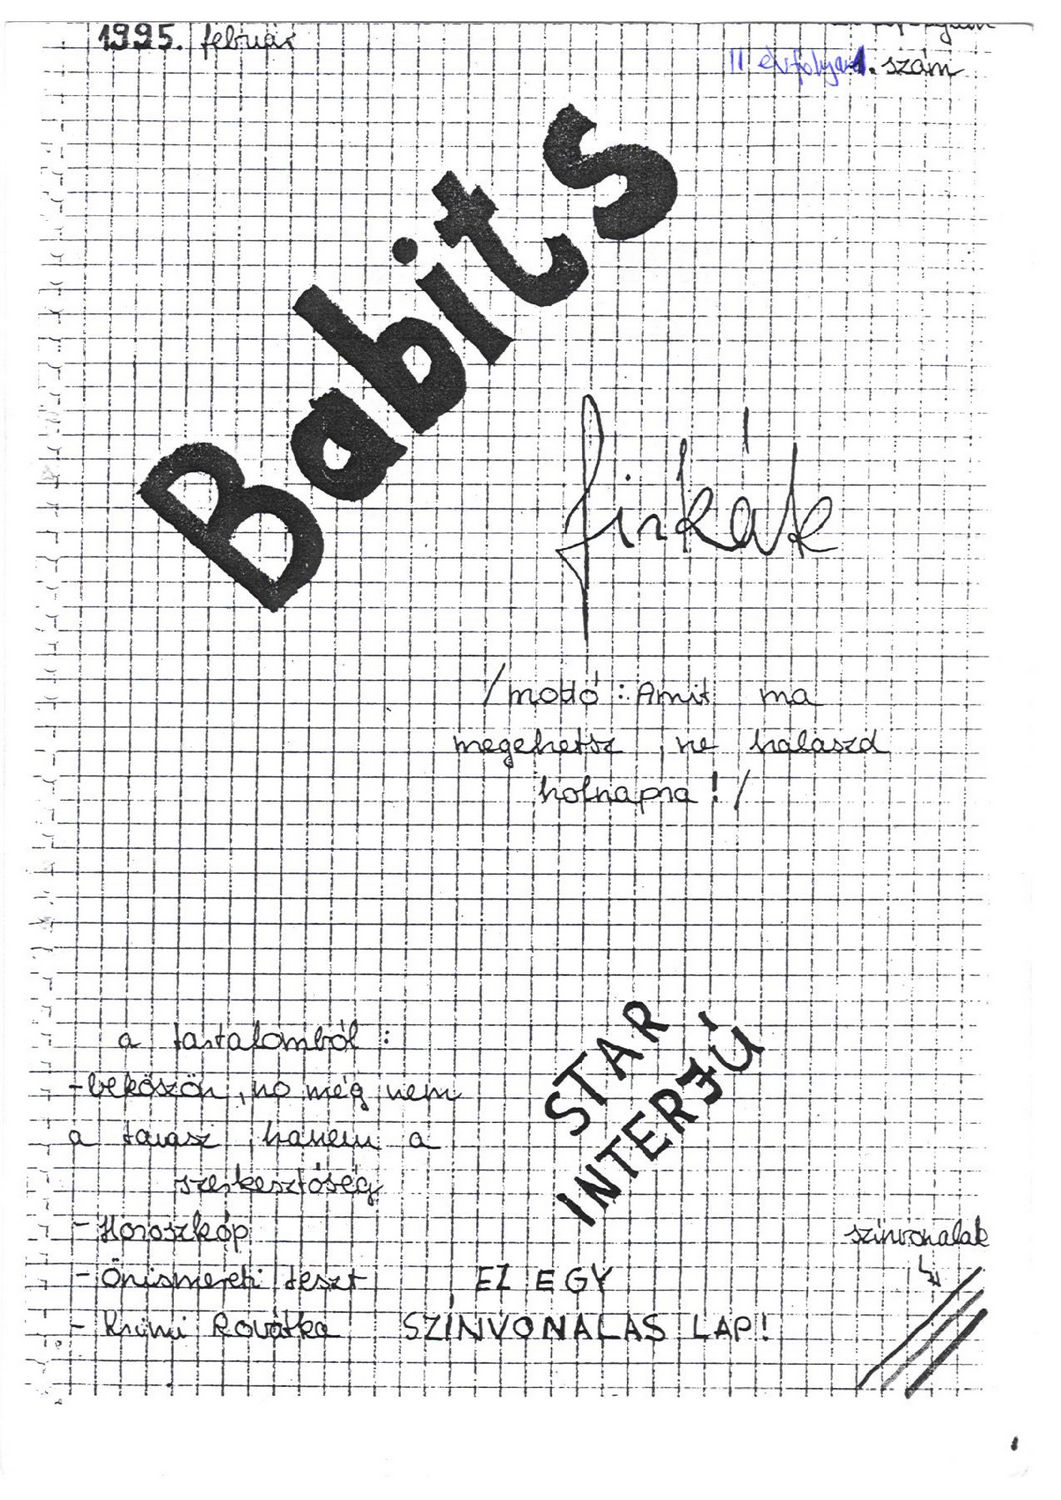 1995. február
II évfolyam 1. szám
Babits
firkák
/mottó: Amit ma
megehetsz, ne halaszd
holnapra!/
a tartalomból:
- beköszön, no még nem
a tavasz, hanem a
szerkesztőség
- Horoszkóp
- Önismereti teszt
- Krimi Rovátka
STAR
INTERJÚ
EZ EGY
SZÍNVONALAS LAP!
színvonalak